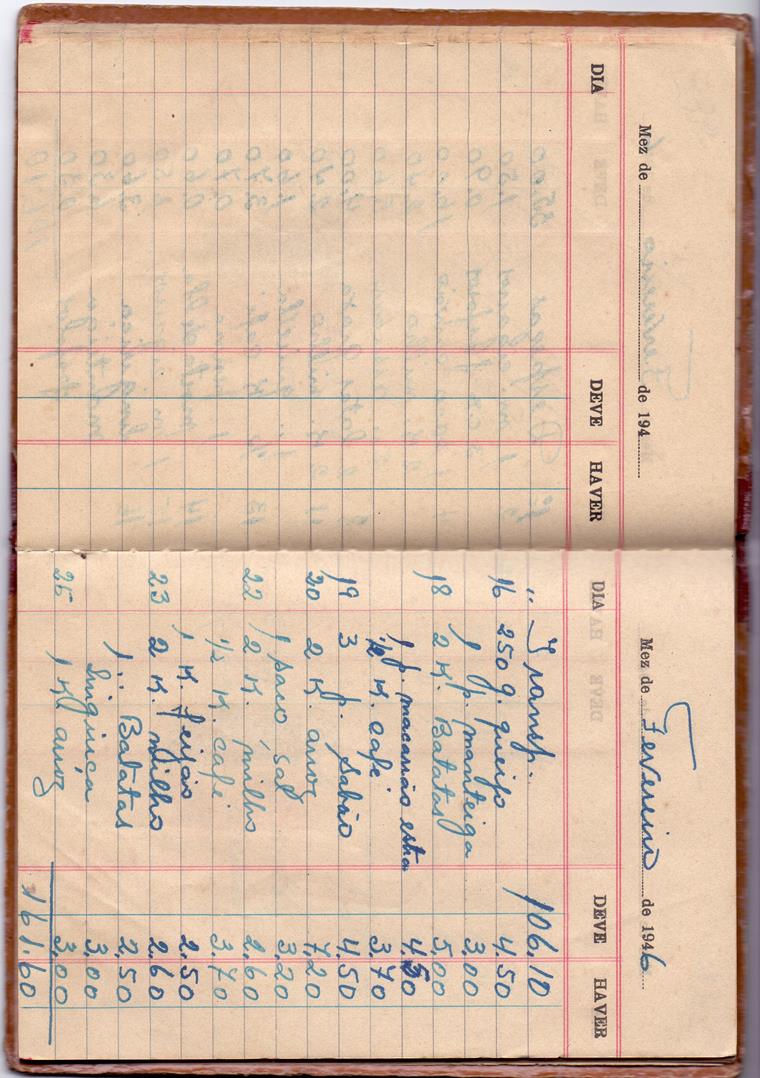 Mez de de 194
DIA DEVE HAVER
Mez de Fevereiro de 1946
DIA DEVE HAVER
" Transp. 106.10
16 250 g. queijo 4.50
1 p. manteiga 3.00
18 2 K. Batatas 5.00
1 p. macarrão 4.50
1/2 K. café 3.70
19 3 p. sabão 4.50
20 2 K. arroz 7.20
1 saco sal 3.20
22 2 K. milho 2.60
1/2 K. café 3.70
1 K. feijão 2.50
23 2 K. milho 2.60
1 " Batatas 2.50
Linguiça 3.00
25 1 K. arroz 3.00
161.60